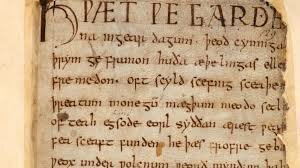 HǷÆT ǷE GARDE
na ingear dagum. þeod cyninga
þrym ge frunon huða æþelingas elle
fremedon. oft scyld scefing sceaþe
þreatum monegū mægþum meodo setl
of teah egsode eorl syððan ærest ƿear
fea sceaft funden he þæs frofre geba
ƿeox under ƿolcnum ƿeorð myndum